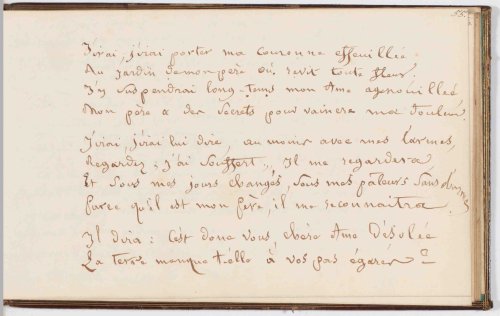 55.
J'irai, j'irai porter ma couronne effeuillée
Au jardin de mon père où revit toute fleur.
J'y suspendrai long-tems mon Ame agenouillée
Mon père a des secrets pour vaincre ma douleur.
J'irai, j'irai lui dire, au moins avec mes larmes,
Regardez, j'ai souffert,, Il me regardera
Et sous mes jours changés, sous mes pâleurs sans charmes
Parce qu'il est mon père, il me reconnaîtra.
Il dira : C'est donc vous, chère Ame Désolée
La terre manque t'elle à vos pas égarés ?